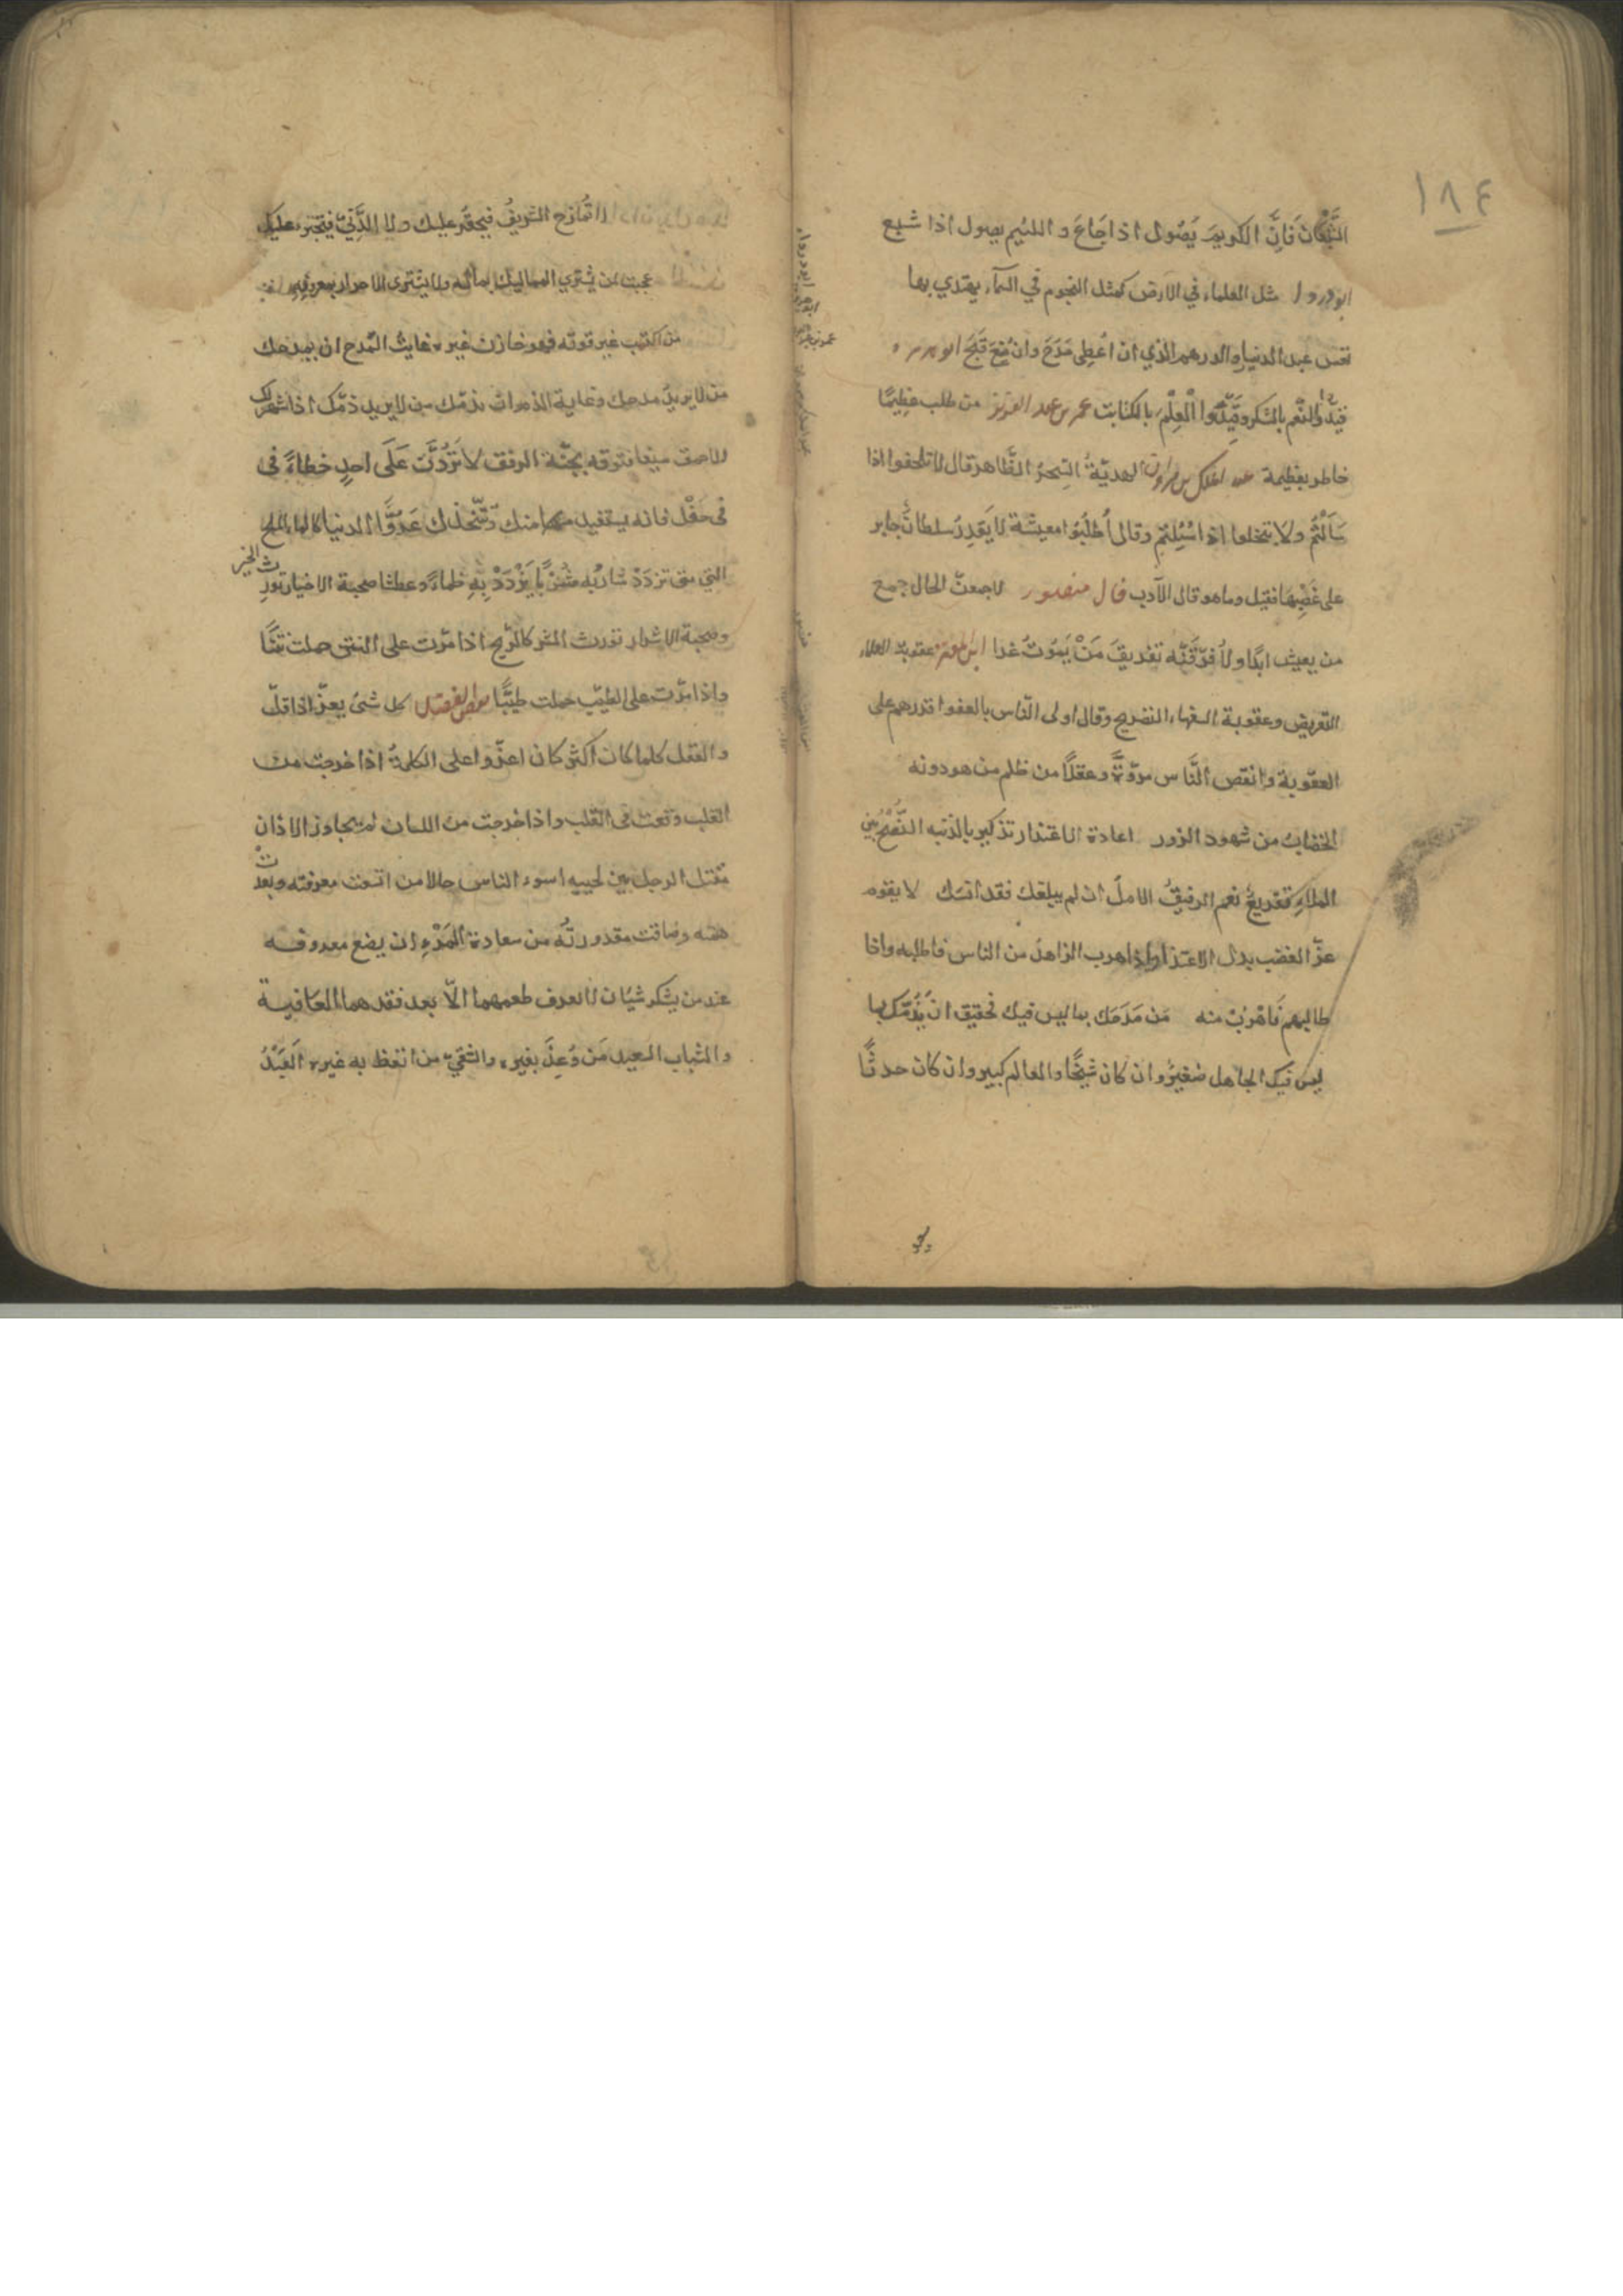 ١٨٤
الشَّبْعَان فَاِنَّ الكريمَ يَصُول اذا جَاعَ و اللئيم يصول اذا شبع
ابو دردا مثل العلماء في الارض كمثل النجوم في السمآء يهتدي بها
تعس عبد الدنيار والدرهم الذي ان اُعطِى مَدَحَ وان مُنِعَ قبَّحَ ابو هريره
قيّدوا النّعم بالشكر وقيِّدُوا الْعِلْمَ بالكتابت عمر بن عبد العزيز من طلب عظِيمًا
خاطر بعظيمة عبد الملك بن مروان الهديّةُ السِحرُ الظّاهر قال لا تلحفوا اذا
سَألتُم ولا تبخلوا اذا سُئِلتم وقال اُطلُبُوا معيشة لا يَقدِرُ سلطانٌ جابر
على غَصْبِهَا فقيل وما هو قال الآدب قال منصور لاجمعنّ المال جمع
من يعيش ابدًا ولأفرّقَنّه تفريقَ مَنْ يَمُوتُ غدا ابن المعتز عقوبت العلماء
التعريض وعقوبة السفهاء التصريح وقال اولى النّاس بالعفو اقدرهم على
العقوبة وانقص النَّاس مروّةً وعقلاً من ظلم من هو دونه
الخضاب من شهود الزور اعادة الاعتذار تذكير بالذنب النُّصْحُ بين
الملاءِ تقريعٌ نعم الرفيقُ الامل ان لم يبلغك فقد انسك لا يقوم
عزّ الغضب بذل الاعتذار واذا هرب الزاهدُ من الناس فاطلبه واذا
طالبهم فَاهْرُبْ منه مَن مَدَحَك بما ليس فيك فحقيق ان يَذُمّك بما
ليس فيك الجاهل صَغيرٌ وان كان شيخًا والعالم كبير وان كان حدثًا
لا تُمازح الشريفُ فيحقد عليك ولا الدَّنِيّ فيتجترء عليك
عجبت لمن يشتري المماليك بماله ولا يشترى الاحرار بمعروفِهِ
من اكتسب غير قوته فهو خازن غيره غايتُ المدح ان يمدحك
من لا يريدُ مدحك وغاية الذم ان يذمّك من لا يريد ذمّك اذا شهر لك
الاحمق سيفا فتوقه بجُنّة الرفق لا تَرُدَّنَّ عَلَى احدٍ خطاءً فى
فى حَفْل فانه يستفيد منك ويتّخذك عَدُوًّا الدنيا كالماء المالح
التي متى تزدَدْ شاربُه شُرْبًا يَزْدَدْ بِهِ ظماءً وعطشا صحبة الاخيار تورث الخير
وصحبة الاشرار تورث الشر كالرّيح اذا مرّت على النتن حملت نتنًا
واذا مرّت على الطيّب حملت طيبًا كل شئ يعزّ اذا قلّ
والعقل كلما كان اكثر كان اعزّ واعلى الكلمةُ اذا خرجت من
القلب وقعت فى القلب واذا خرجت من اللسان لم يتجاوز الاذان
مقتل الرجل بين لحييه اسوء الناس حالا من اتسعت معرفته وبعدت
همّته وضاقت مقدورتُه من سعادة المَرْءِ ان يضع معروفه
عند من يشكر شيئان لا يعرف طعمهما الاّ بعد فقدهما العَافية
والشباب السعيد مَن وُعِظَ بغيره والشقيّ من اتعظ به غيره العَبْدُ